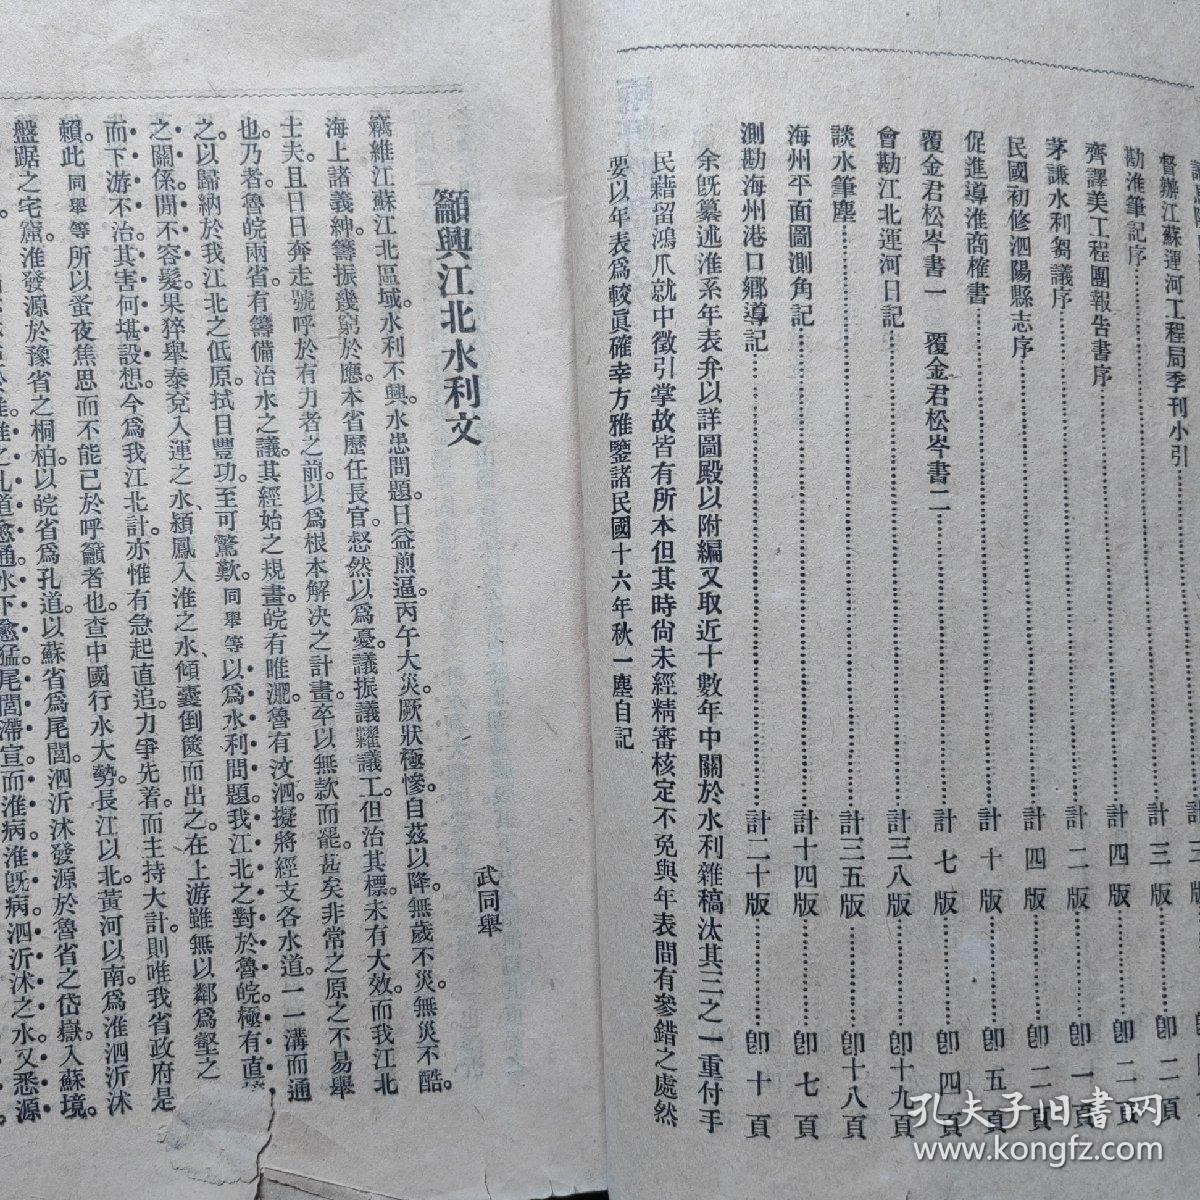 督辦江蘇運河工程局季刊小引……計三版……卽二頁
勘淮筆記序……計四版……卽二頁
齊譯美工程團報告書序……計二版……卽一頁
茅謙水利芻議序……計四版……卽二頁
民國初修泗陽縣志序……計四版……卽二頁
促進導淮商榷書……計十版……卽五頁
覆金君松岑書一　覆金君松岑書二……計七版……卽四頁
會勘江北運河日記……計三八版……卽十九頁
談水筆塵……計三五版……卽十八頁
海州平面圖測角記……計十四版……卽七頁
測勘海州港口鄉導記……計二十版……卽十頁
余既纂述淮系年表弁以詳圖殿以附編又取近十數年中關於水利雜稿汰其三之一重付手
民藉留鴻爪就中徵引掌故皆有所本但其時尙未經精審核定不免與年表間有參錯之處然
要以年表爲較眞確幸方雅鑒諸民國十六年秋一塵自記
籲興江北水利文
武同舉
竊維江蘇江北區域。水利不興。水患問題。日益煎逼。丙午大災。厥狀極慘。自茲以降。無歲不災。無災不酷。
海上諸義紳。籌振幾窮於應。本省歷任長官。怒然以爲憂。議振議糶議工。但治其標。未有大效。而我江北
士夫。且日日奔走號呼於有力者之前。以爲根本解決之計畫。卒以無款而罷。甚矣非常之原之不易舉
也。乃者。魯皖兩省。有籌備治水之議。其經始之規畫。皖有睢澥。魯有汶泗。擬將經支各水道。一一溝而通
之。以歸納於我江北之低原。拭目豐功。至可驚歎。同舉等以爲水利問題。我江北之對於魯皖。極有直接
之關係。間不容髮。果猝舉泰兗入運之水、潁鳳入淮之水、傾囊倒篋而出之。在上游雖無以鄰爲壑之
而下游不治。其害何堪設想。今爲我江北計。亦惟有急起直追。力爭先着。而主持大計。則唯我省政府是
賴。此同舉等所以蚤夜焦思而不能已於呼籲者也。查中國行水大勢。長江以北。黃河以南。爲淮泗沂沭
盤踞之宅窟。淮發源於豫省之桐柏。以皖省爲孔道。以蘇省爲尾閭。泗沂沭發源於魯省之岱嶽。入蘇境。
道愈通。水下愈猛。尾閭滯宣。而淮病。淮既病。泗沂沭之水又悉源
孔夫子旧书网
www.kongfz.com